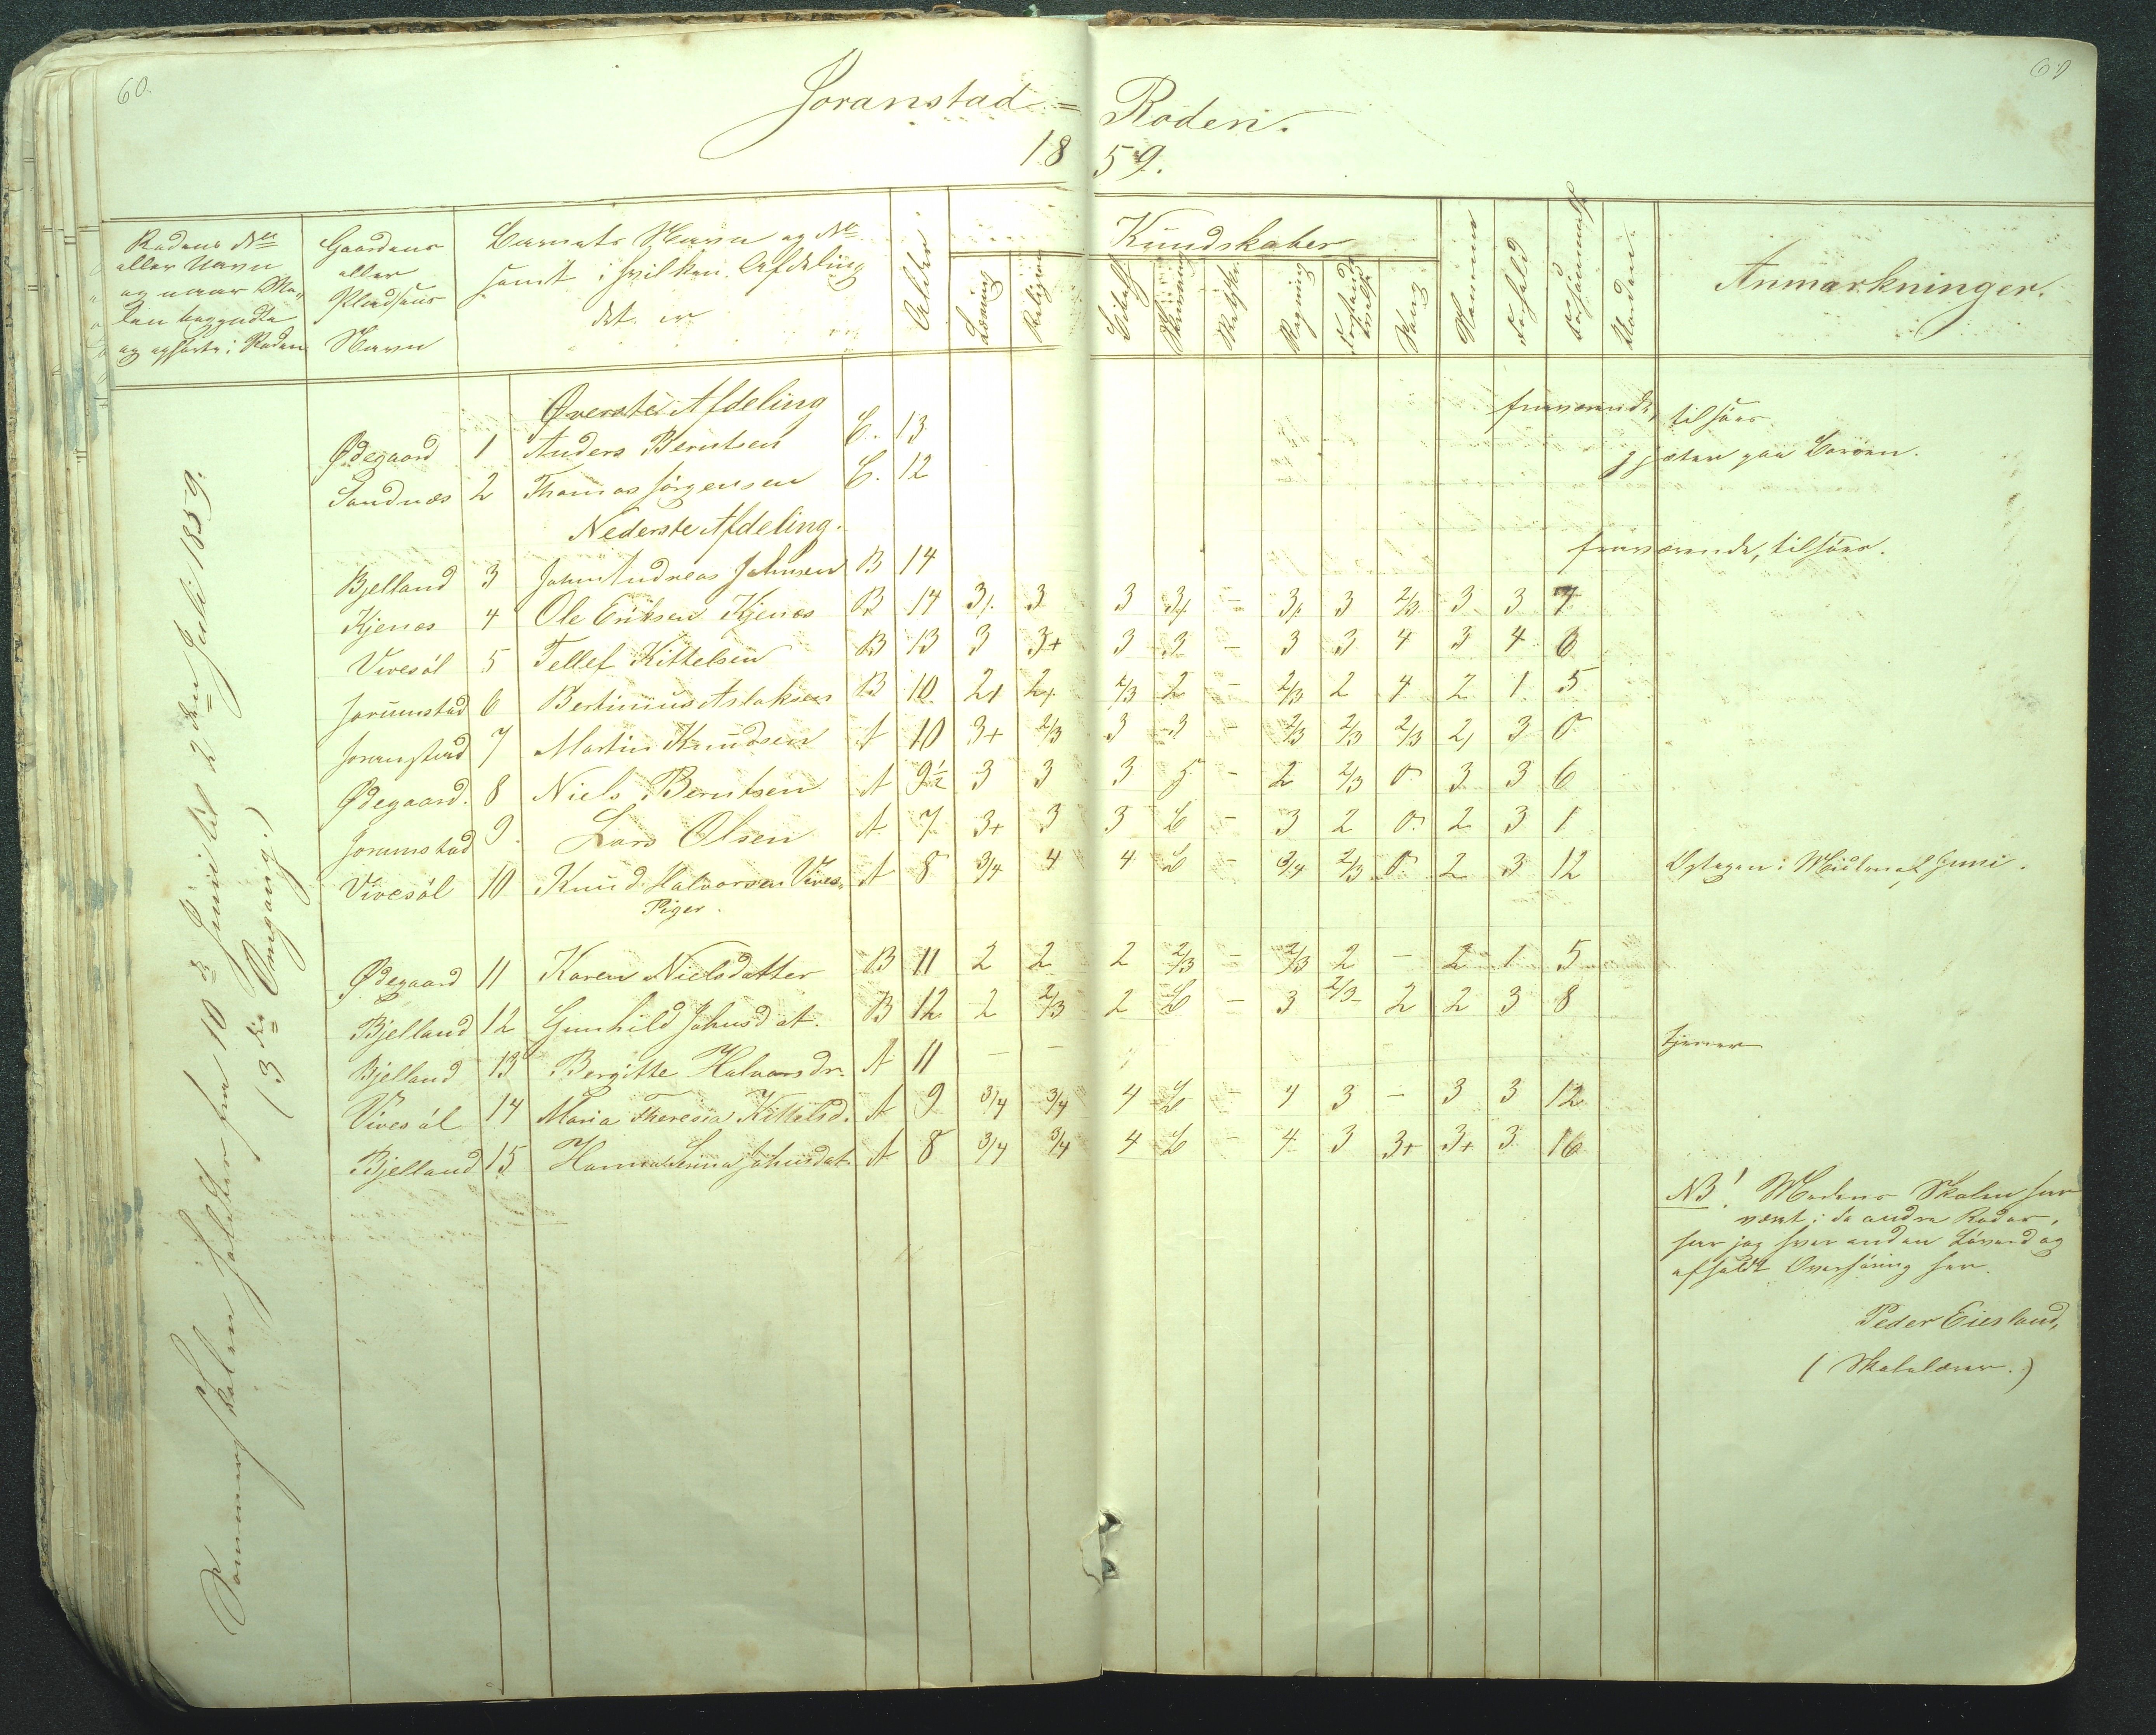 60.
61
Joranstad= Roden.
1859.
Rodens No
eller Navn
og naar Sko-
len begyndte
og ophørte i Roden
Gaardens
eller
Pladsens
Navn
Barnets Navn og No
samt i hvilken Afdeling
det er
Alder
Kundskaber
Læsning
Religion
Skrivning
Regning
Sang
Nemme
Forhold
Forsømmelse
Anmærkninger.
Sommerskolen holdtes fra 10de Juni til 2den Juli 1859.
(3die Omgang.)
Øverste Afdeling
Ødegaard 1 Anders Berntsen C. 13 fraværende, tilsøes
Sandnæs 2 Thomas Jörgensen C. 12 gjæter paa Borøen.
Nederste Afdeling.
Bjelland 3 John Andreas Johnsen B 14 fraværende, tilsøes.
Kjenæs 4 Ole Eriksen Kjenæs B 14 3/. 3 3 3/. - 3/. 3 2/3 3 3 7
Vivesöl 5 Tellef Kittelsen B 13 3 3+ 3 3 - 3 3 4 3 4 6
Joranstad 6 Bertinius Aslaksen B 10 2/. 2/. 2/3 2 - 2/3 2 4 2 1 5
Joranstad 7 Martin Knudsen A 10 3+ 2/3 3 3 - 2/3 2/3 2/3 2/ 3 0
Ødegaard. 8 Niels Berntsen A 9½ 3 3 3 5 - 2 2/3 0 3 3 6
Joranstad 9. Lars Olsen A 7 3+ 3 3 L - 3 2 0 2 3 1
Vivesöl 10 Knud Halvorsen Vives. A 8 3/4 4 4 L - 3/4 2/3 0 2 3 12 Optagen i Midten af Juni.
Piger.
Ødegaard 11 Karen Nielsdatter B 11 2 2 2 2/3 - 2/3 2 - 2 1 5
Bjelland 12 Gunhild Johnsdat. B 12 2 2/3 2 L - 3 2/3 2 2 3 8
Bjelland 13 Bergitte Halvorsdr. A 11 - - tjener
Vivesöl 14 Maria Theresia Kittelsd. A 9 3/4 3/4 4 L - 4 3 - 3 3 12
Bjelland 15 Hanna Serina Johnsdat. A 8 3/4 3/4 4 L - 4 3 3+ 3+ 3 16
NB! Medens Skolen har
været i de andre Roder,
har jeg hver anden Löverdag
afholdt Overhöring her.
Peder Eiesland,
(Skolelærer.)